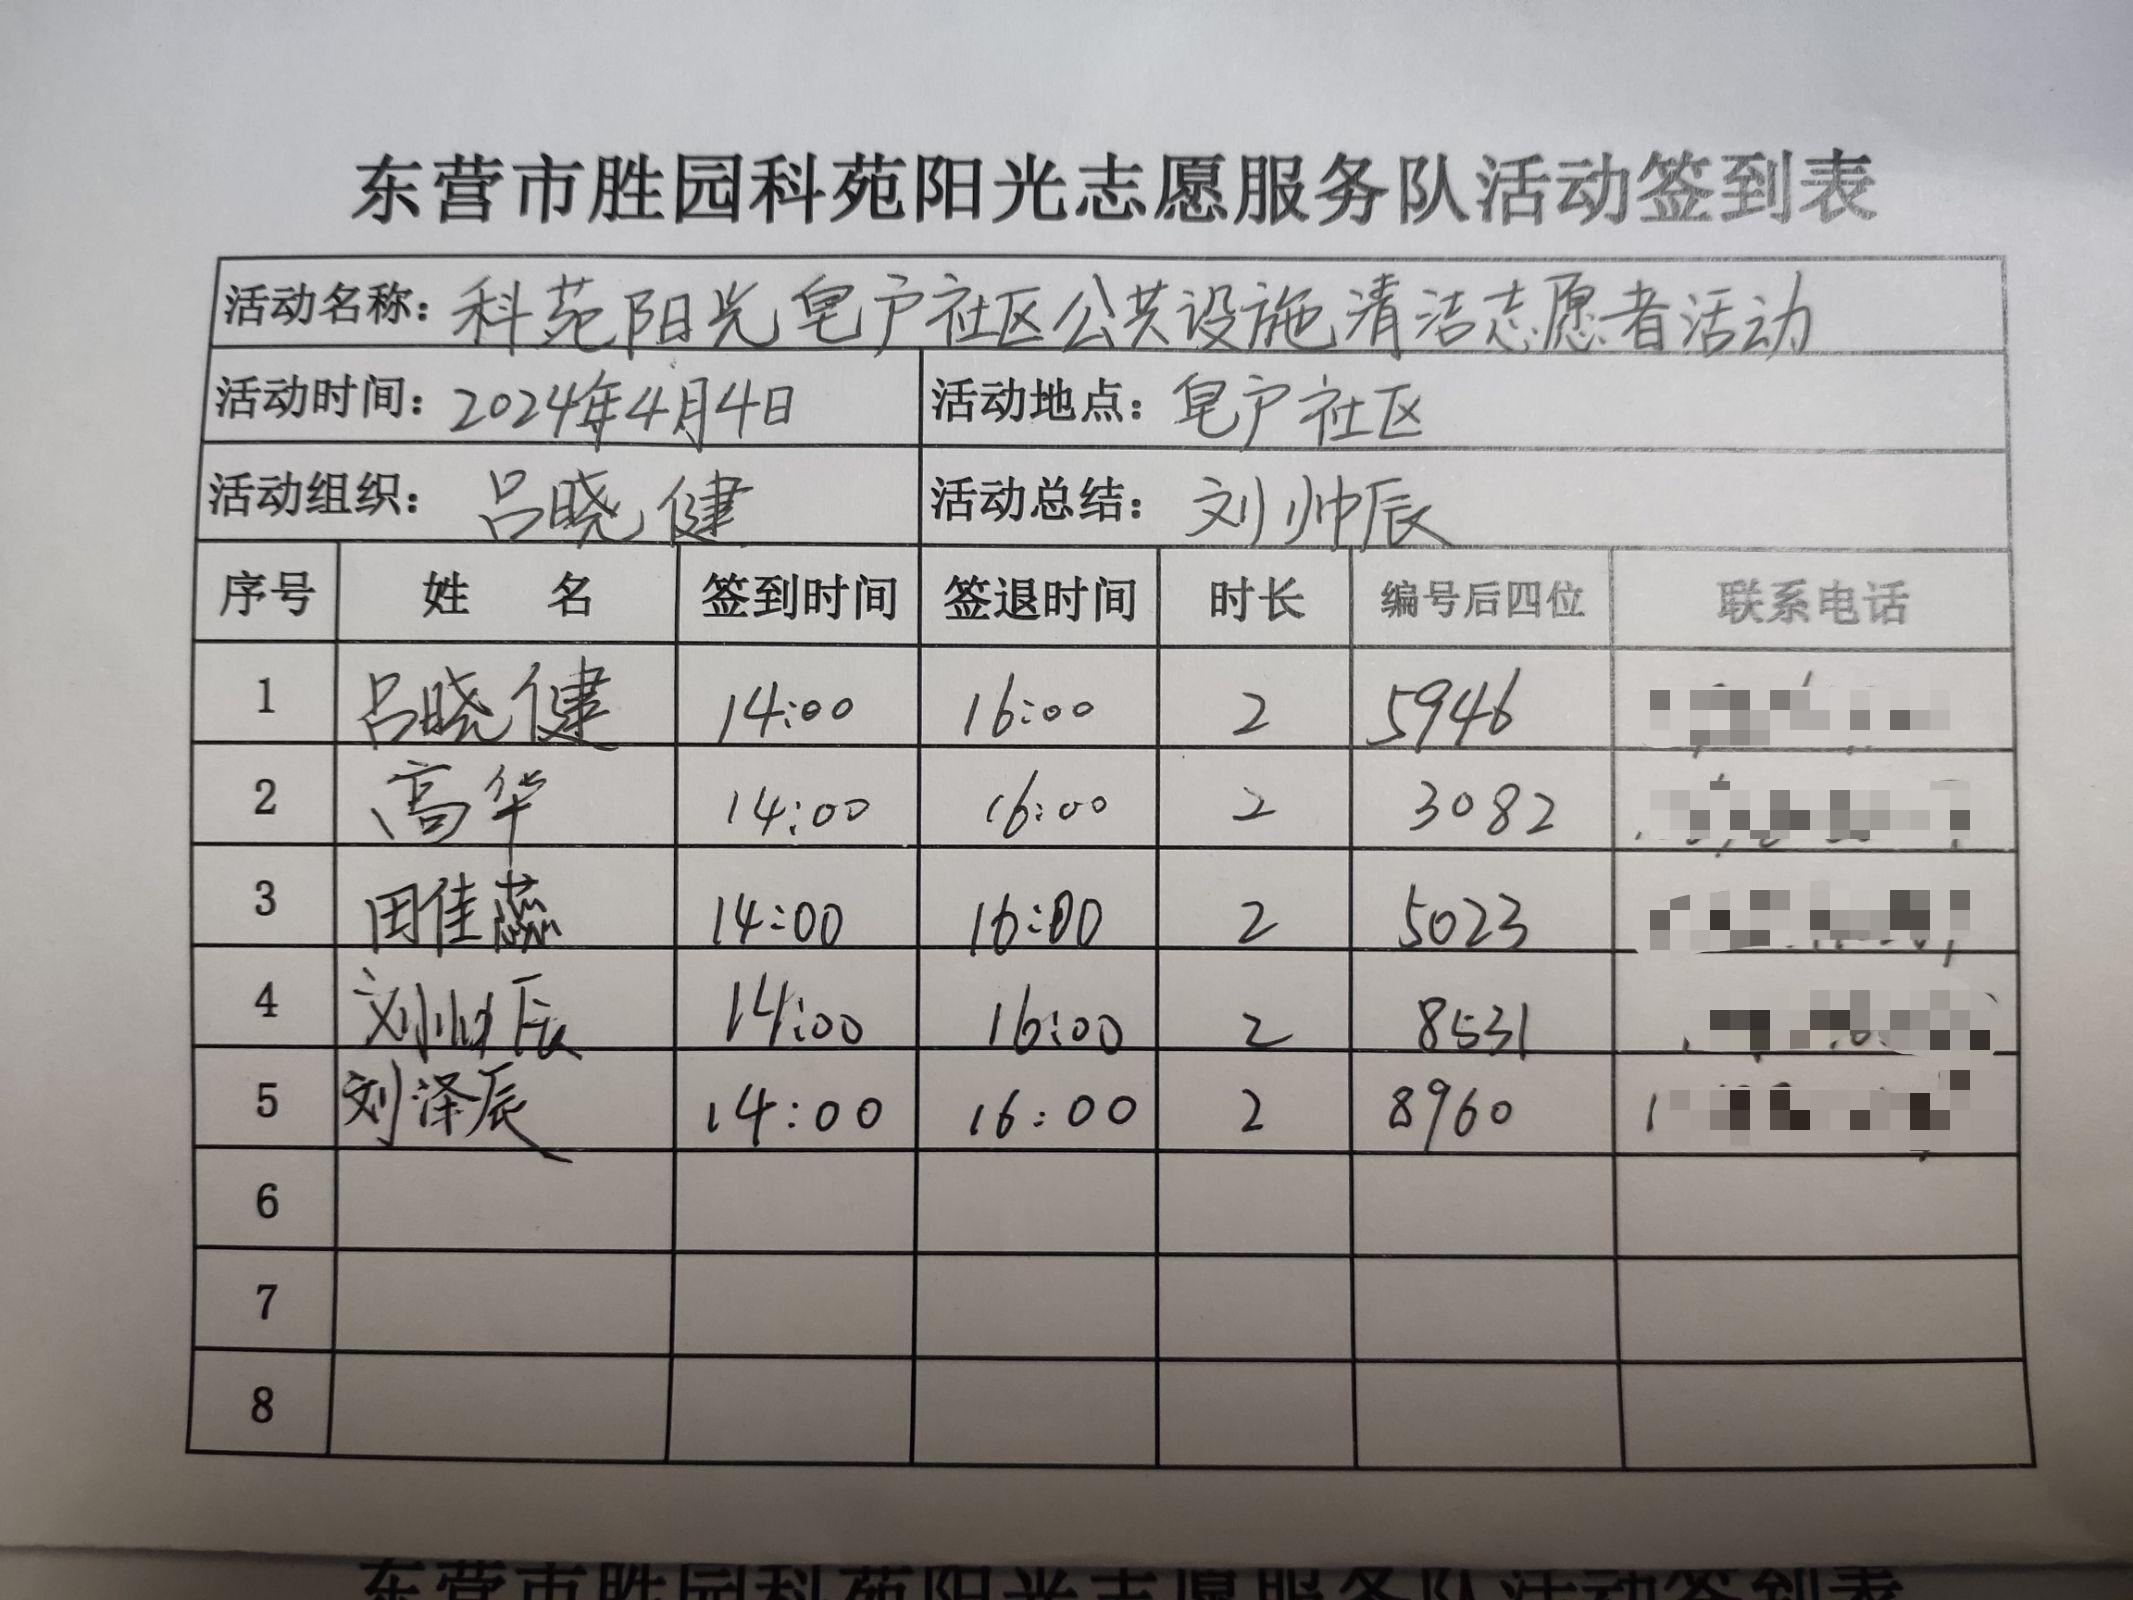 东营市胜园科苑阳光志愿服务队活动签到表
活动名称：科苑阳光皂户社区公共设施清洁志愿者活动
活动时间：2024年4月4日 活动地点：皂户社区
活动组织：吕晓健 活动总结：刘帅辰
序号 姓名 签到时间 签退时间 时长 编号后四位 联系电话
1 吕晓健 14:00 16:00 2 5946
2 高华 14:00 16:00 2 3082
3 田佳蕊 14:00 16:00 2 5023
4 刘帅辰 14:00 16:00 2 8531
5 刘泽辰 14:00 16:00 2 8960
6
7
8
东营市胜园科苑阳光志愿服务队活动签到表